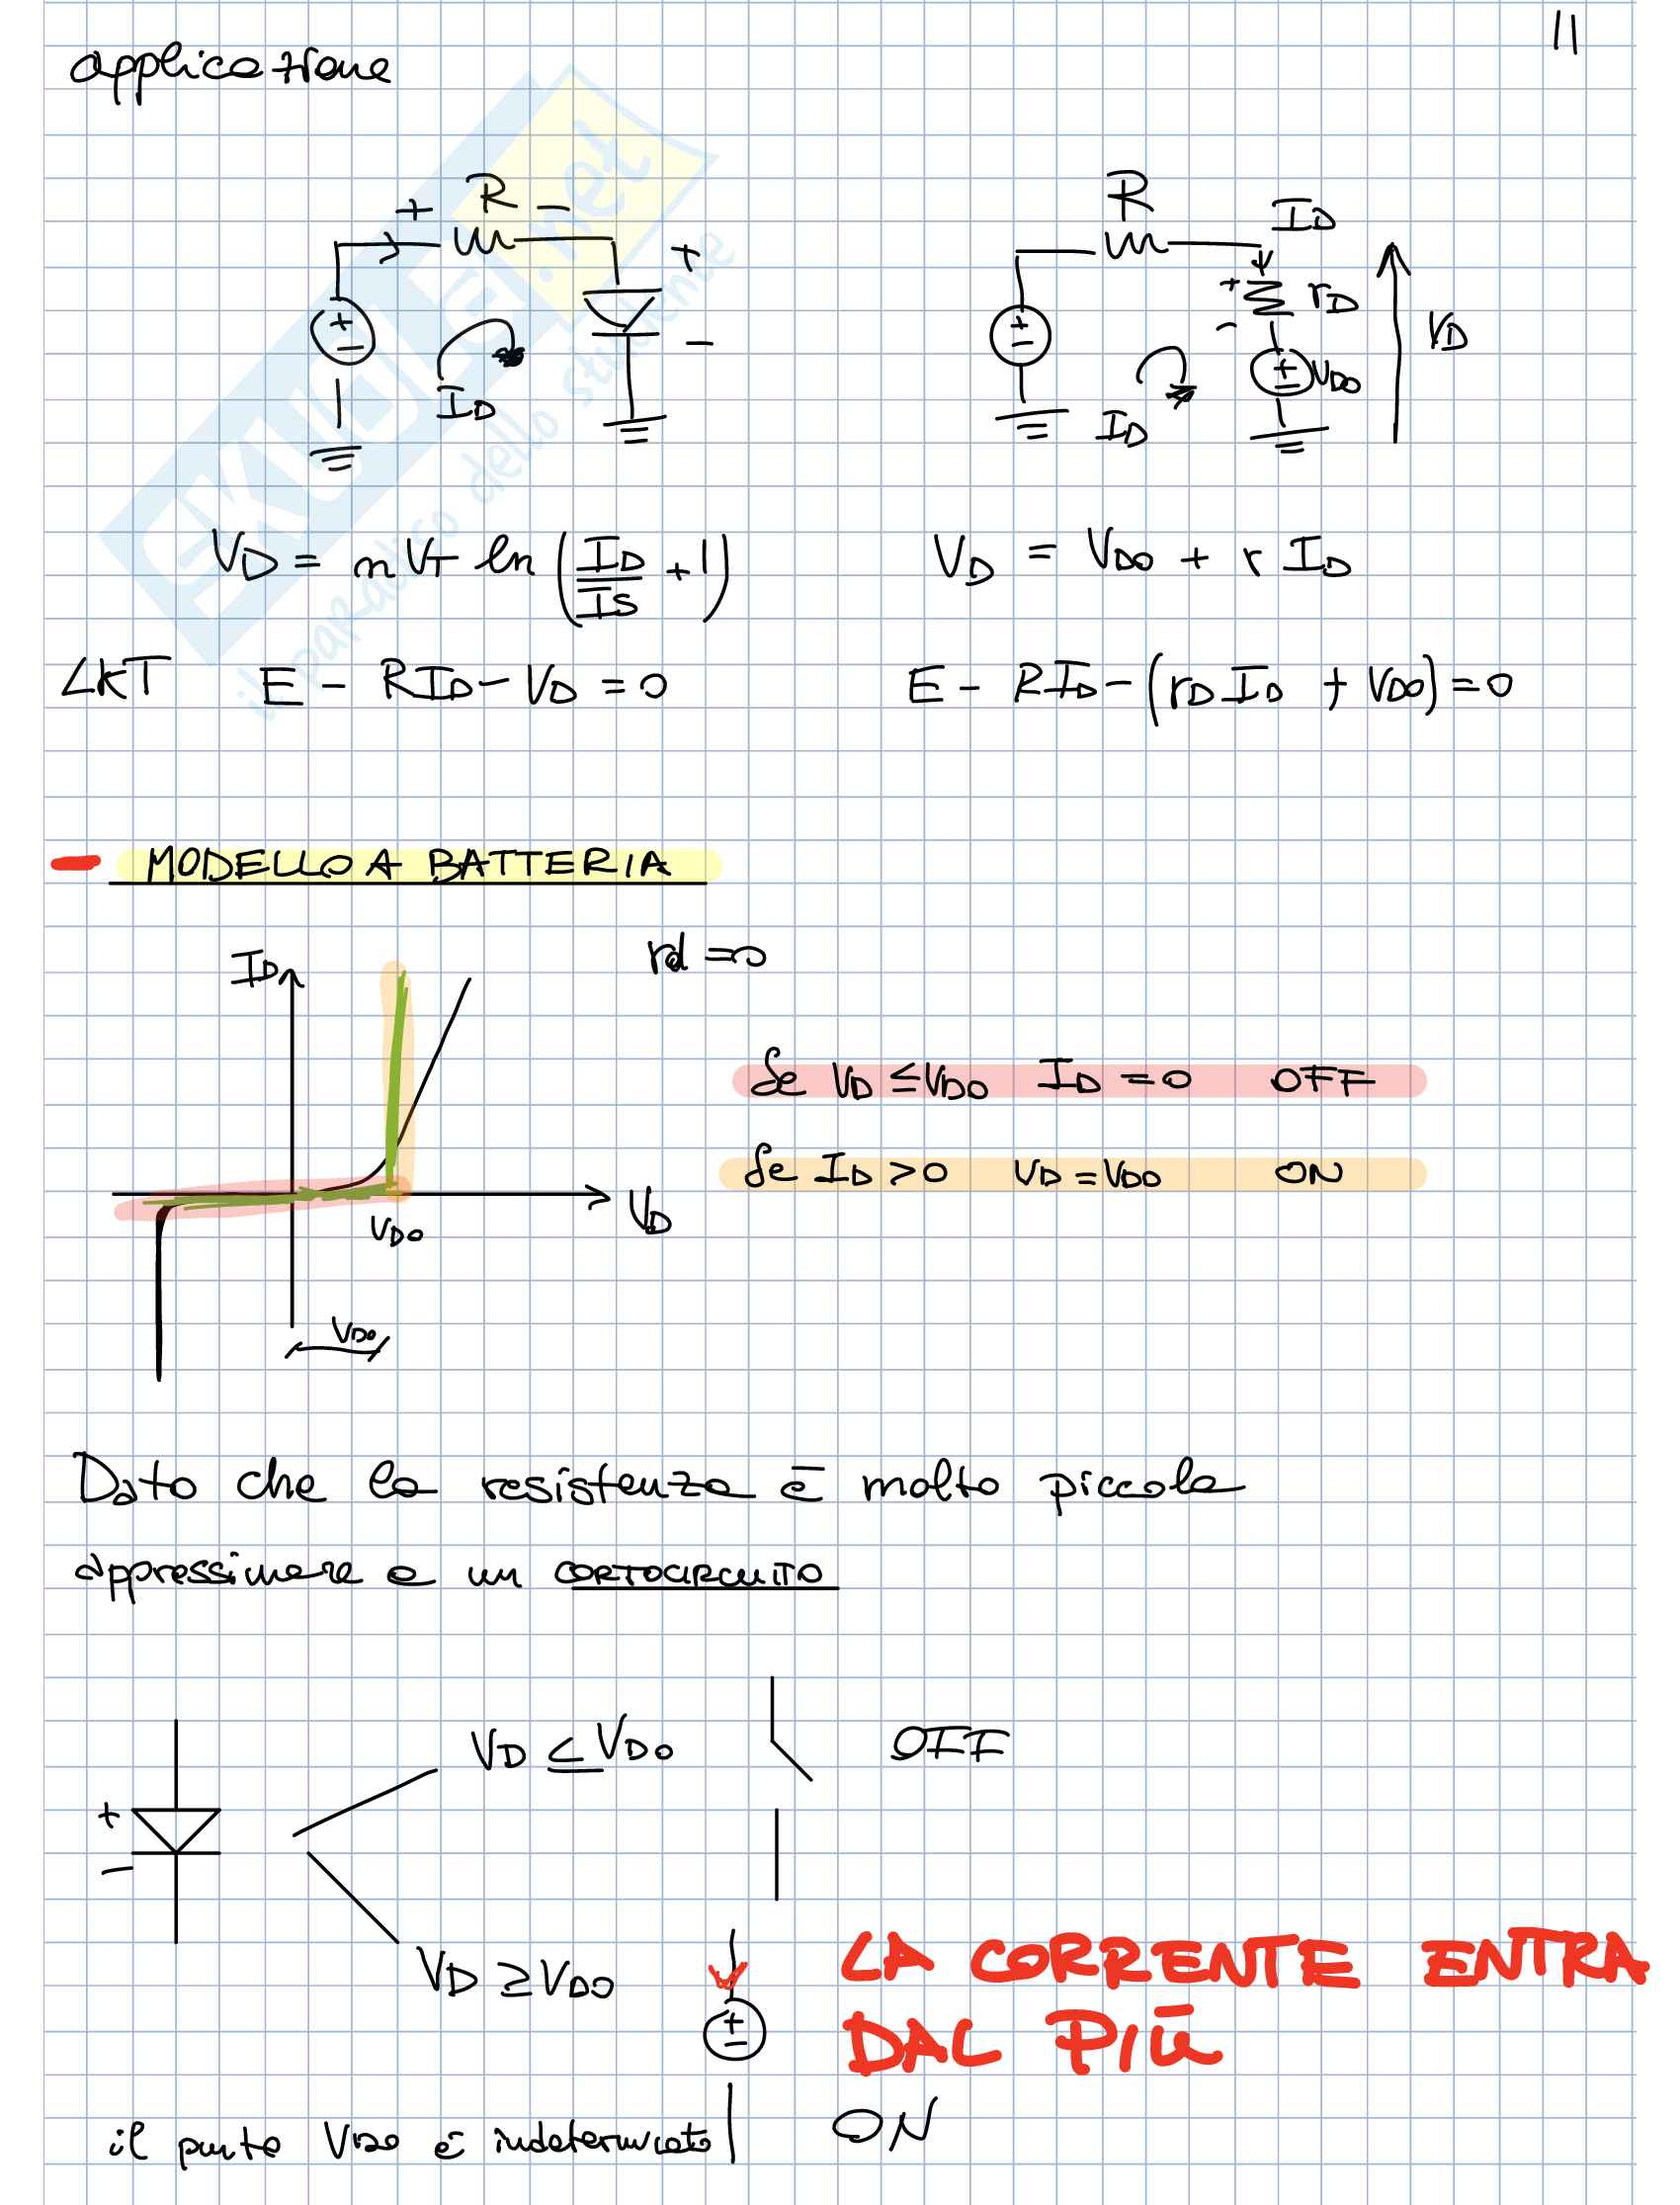 11
applicazione
+ R -
+
-
+
-
I_D
R
I_D
+
-
r_D
+
-
V_D0
V_D
I_D
V_D = n V_T ln (I_D/I_S + 1)
V_D = V_D0 + r I_D
LKT E - R I_D - V_D = 0
E - R I_D - (r_D I_D + V_D0) = 0
- MODELLO A BATTERIA
I_D
rd = 0
Se V_D ≤ V_D0 I_D = 0 OFF
Se I_D > 0 V_D = V_D0 ON
V_D0
V_D
V_D0
Dato che la resistenza è molto piccola
appressimare a un CORTOCIRCUITO
V_D ≤ V_D0
OFF
+
-
V_D ≥ V_D0
LA CORRENTE ENTRA
DAL PIÙ
+
-
ON
il punto V_D0 è indeterminato
SKUOLA.net
il paradiso dello studente